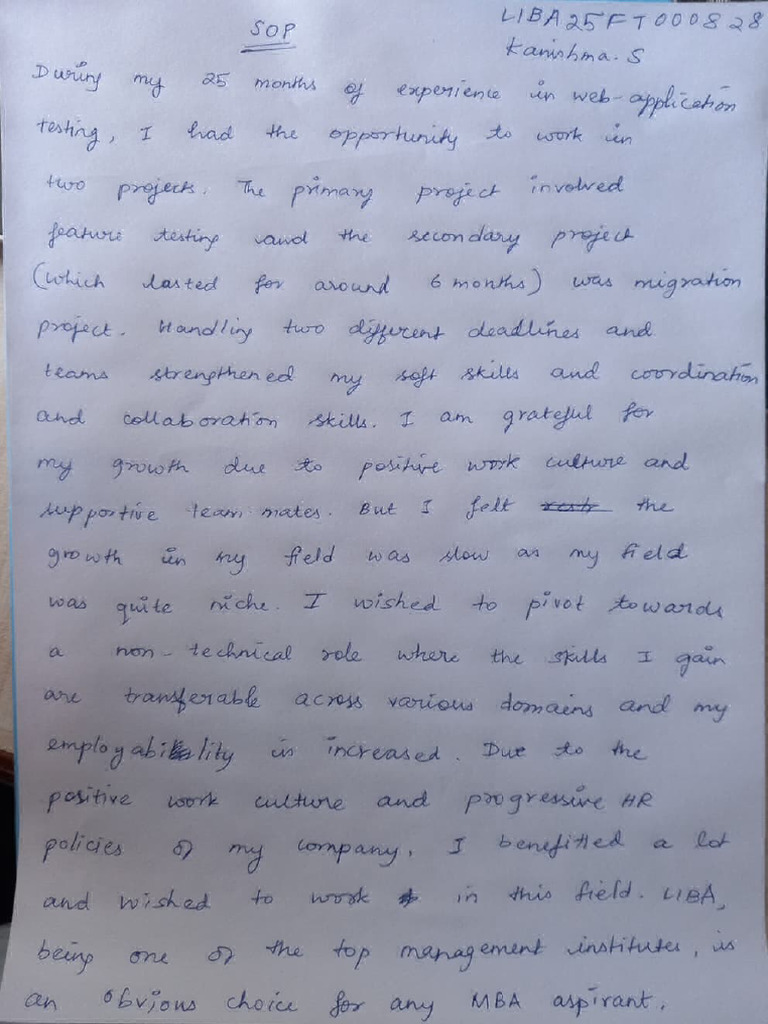 SOP
LIBA25FT000828
Kanishma. S
During my 25 months of experience in web-application
testing, I had the opportunity to work in
two projects. The primary project involved
feature testing and the secondary project
(which lasted for around 6 months) was migration
project. Handling two different deadlines and
teams strengthened my soft skills and coordination
and collaboration skills. I am grateful for
my growth due to positive work culture and
supportive team mates. But I felt the
growth in my field was slow as my field
was quite niche. I wished to pivot towards
a non-technical role where the skills I gain
are transferable across various domains and my
employability is increased. Due to the
positive work culture and progressive HR
policies of my company, I benefitted a lot
and wished to work in this field. LIBA,
being one of the top management institutes, is
an obvious choice for any MBA aspirant.